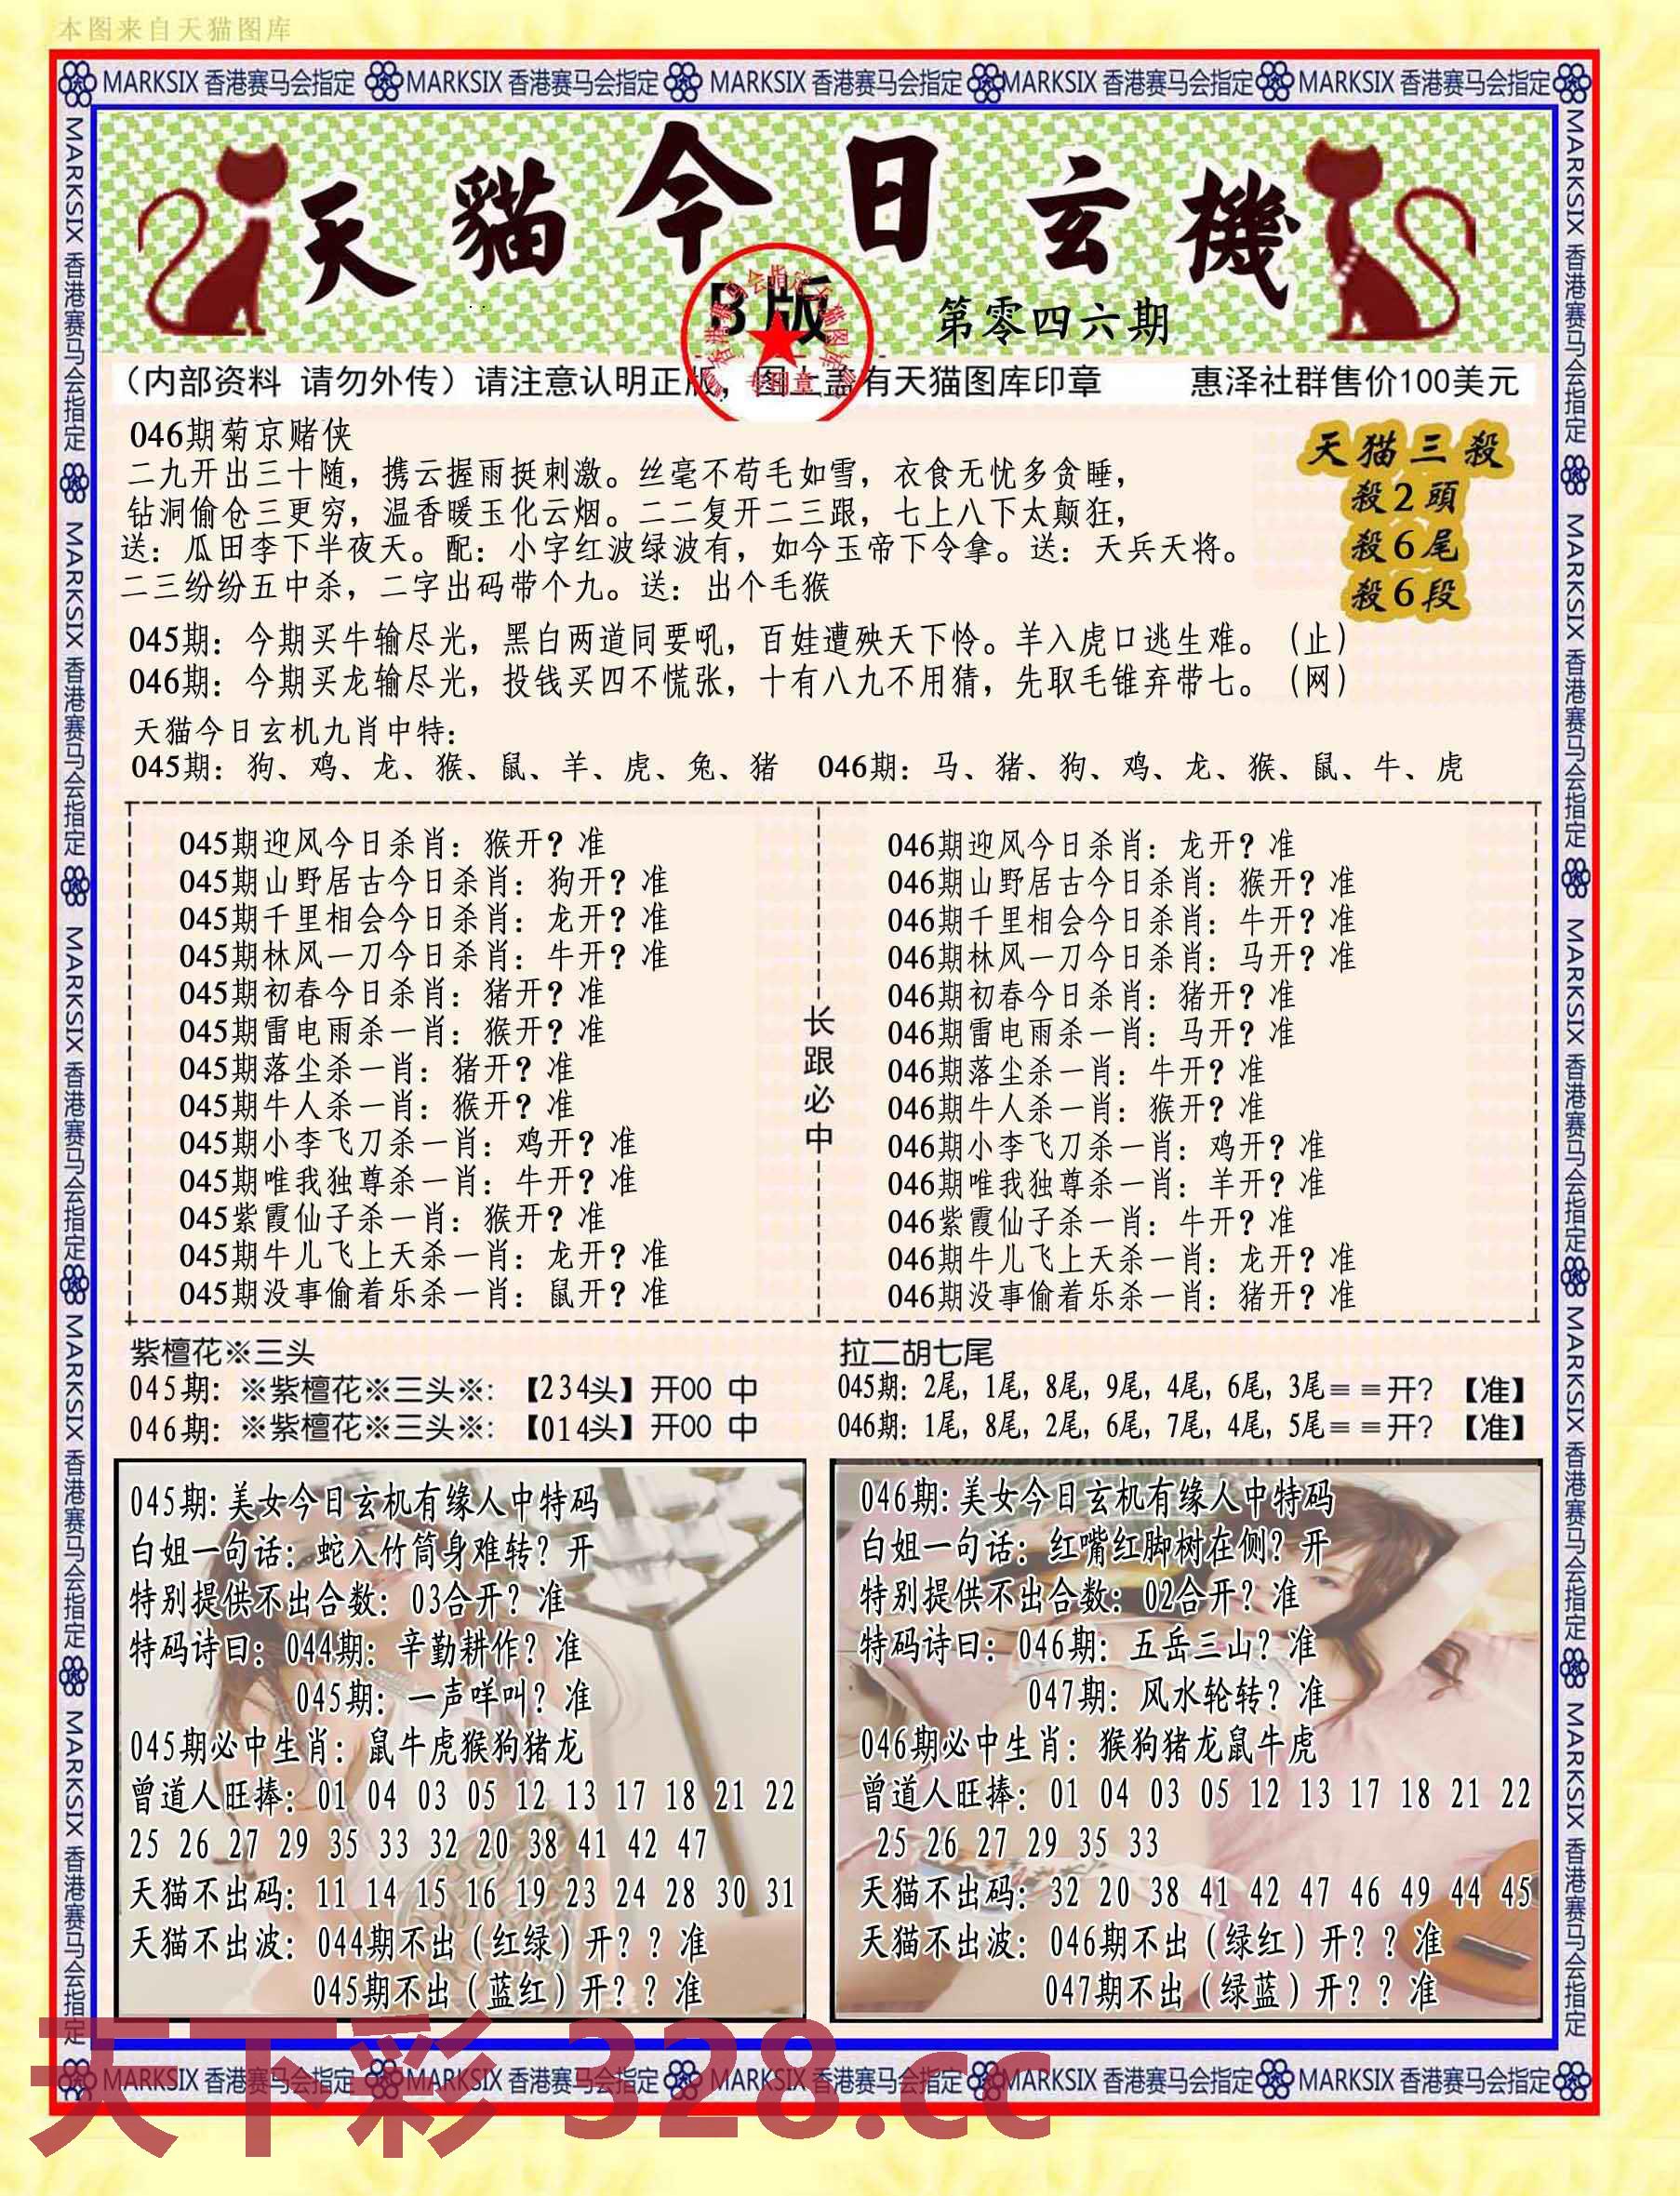 本图来自天猫图库
MARKSIX 香港赛马会指定 MARKSIX 香港赛马会指定 MARKSIX 香港赛马会指定 MARKSIX 香港赛马会指定 MARKSIX 香港赛马会指定
天貓今日玄機
B版
第零四六期
（内部资料 请勿外传）请注意认明正版，图上盖有天猫图库印章 惠泽社群售价100美元
专用章
046期菊京赌侠
二九开出三十随，携云握雨挺刺激。丝毫不苟毛如雪，衣食无忧多贪睡，
钻洞偷仓三更穷，温香暖玉化云烟。二二复开二三跟，七上八下太颠狂，
送：瓜田李下半夜天。配：小字红波绿波有，如今玉帝下令拿。送：天兵天将。
二三纷纷五中杀，二字出码带个九。送：出个毛猴
天猫三殺
殺2頭
殺6尾
殺6段
045期：今期买牛输尽光，黑白两道同要吼，百娃遭殃天下怜。羊入虎口逃生难。（止）
046期：今期买龙输尽光，投钱买四不慌张，十有八九不用猜，先取毛锥弃带七。（网）
天猫今日玄机九肖中特：
045期：狗、鸡、龙、猴、鼠、羊、虎、兔、猪 046期：马、猪、狗、鸡、龙、猴、鼠、牛、虎
045期迎风今日杀肖：猴开？准
045期山野居古今日杀肖：狗开？准
045期千里相会今日杀肖：龙开？准
045期林风一刀今日杀肖：牛开？准
045期初春今日杀肖：猪开？准
045期雷电雨杀一肖：猴开？准
045期落尘杀一肖：猪开？准
045期牛人杀一肖：猴开？准
045期小李飞刀杀一肖：鸡开？准
045期唯我独尊杀一肖：牛开？准
045紫霞仙子杀一肖：猴开？准
045期牛儿飞上天杀一肖：龙开？准
045期没事偷着乐杀一肖：鼠开？准
长跟必中
046期迎风今日杀肖：龙开？准
046期山野居古今日杀肖：猴开？准
046期千里相会今日杀肖：牛开？准
046期林风一刀今日杀肖：马开？准
046期初春今日杀肖：猪开？准
046期雷电雨杀一肖：马开？准
046期落尘杀一肖：牛开？准
046期牛人杀一肖：猴开？准
046期小李飞刀杀一肖：鸡开？准
046期唯我独尊杀一肖：羊开？准
046紫霞仙子杀一肖：牛开？准
046期牛儿飞上天杀一肖：龙开？准
046期没事偷着乐杀一肖：猪开？准
紫檀花※三头
045期：※紫檀花※三头※：【234头】开00 中
046期：※紫檀花※三头※：【014头】开00 中
拉二胡七尾
045期：2尾，1尾，8尾，9尾，4尾，6尾，3尾＝＝开？【准】
046期：1尾，8尾，2尾，6尾，7尾，4尾，5尾＝＝开？【准】
045期:美女今日玄机有缘人中特码
白姐一句话：蛇入竹筒身难转？开
特别提供不出合数：03合开？准
特码诗曰：044期：辛勤耕作？准
045期：一声咩叫？准
045期必中生肖：鼠牛虎猴狗猪龙
曾道人旺捧：01 04 03 05 12 13 17 18 21 22
25 26 27 29 35 33 32 20 38 41 42 47
天猫不出码：11 14 15 16 19 23 24 28 30 31
天猫不出波：044期不出（红绿）开？？准
045期不出（蓝红）开？？准
046期:美女今日玄机有缘人中特码
白姐一句话：红嘴红脚树在侧？开
特别提供不出合数：02合开？准
特码诗曰：046期：五岳三山？准
047期：风水轮转？准
046期必中生肖：猴狗猪龙鼠牛虎
曾道人旺捧：01 04 03 05 12 13 17 18 21 22
25 26 27 29 35 33
天猫不出码：32 20 38 41 42 47 46 49 44 45
天猫不出波：046期不出（绿红）开？？准
047期不出（绿蓝）开？？准
MARKSIX 香港赛马会指定 MARKSIX 香港赛马会指定 MARKSIX 香港赛马会指定 MARKSIX 香港赛马会指定 MARKSIX 香港赛马会指定
MARKSIX 香港赛马会指定 MARKSIX 香港赛马会指定 MARKSIX 香港赛马会指定 MARKSIX 香港赛马会指定 MARKSIX 香港赛马会指定
MARKSIX 香港赛马会指定 MARKSIX 香港赛马会指定 MARKSIX 香港赛马会指定 MARKSIX 香港赛马会指定 MARKSIX 香港赛马会指定
天下彩 328.cc